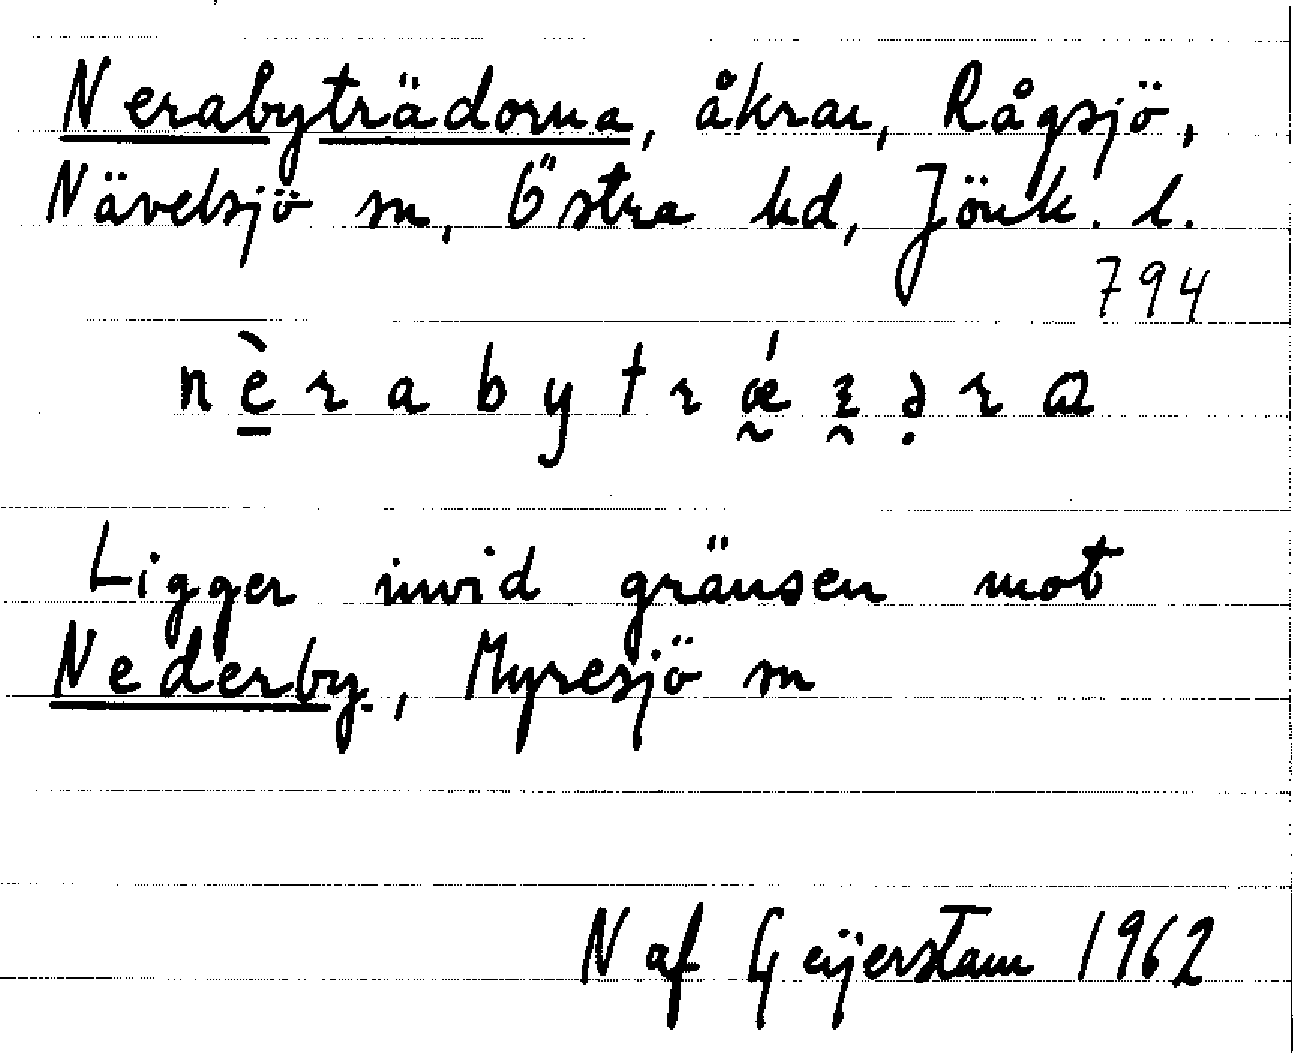 Nerabyträdorna, åkrar, Rågsjö,
Nävelsjö sn, Östra hd, Jönk. l.
794
nè̱rabytrǽ̰ɿ̯ə̣ra
Ligger invid gränsen mot
Nederby, Myresjö sn
N af Geijerstam 1962